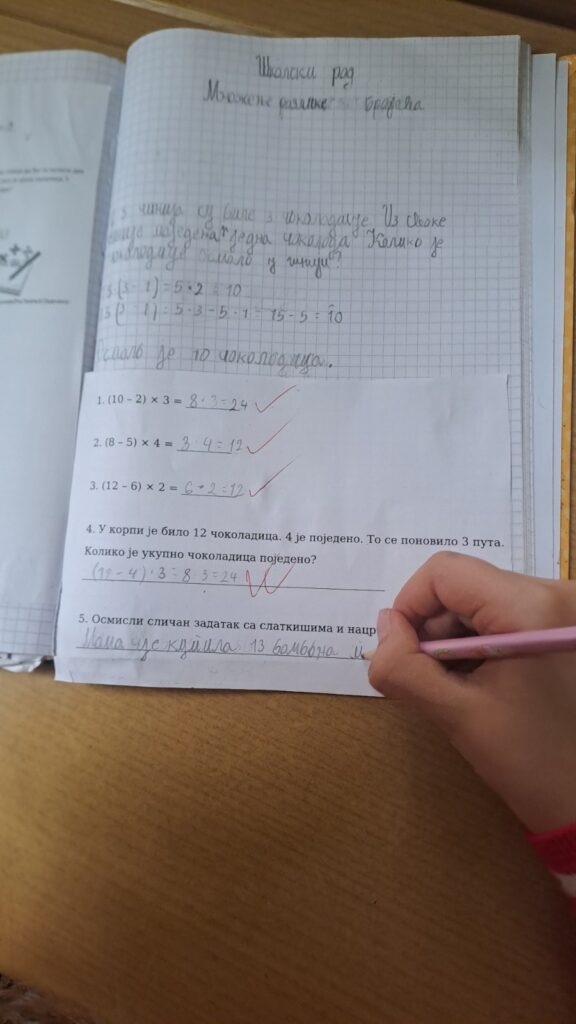 Школски рад
Множење разлике бројева
5 чинија су биле 3 чоколадице. Из сваке
је поједена једна чоколада. Колико је
чоколадице остало у чинији?
(3 - 1) = 5 · 2 = 10
= 5 · 3 - 5 · 1 = 15 - 5 = 10
је 10 чоколадица.
1. (10 – 2) × 3 = 8 · 3 = 24
2. (8 – 5) × 4 = 3 · 4 = 12
3. (12 – 6) × 2 = 6 · 2 = 12
4. У корпи је било 12 чоколадица. 4 је поједено. То се поновило 3 пута.
Колико је укупно чоколадица поједено?
- 4) · 3 = 8 · 3 = 24
5. Осмисли сличан задатак са слаткишима и нацр
Мама је купила 13 бомбона и